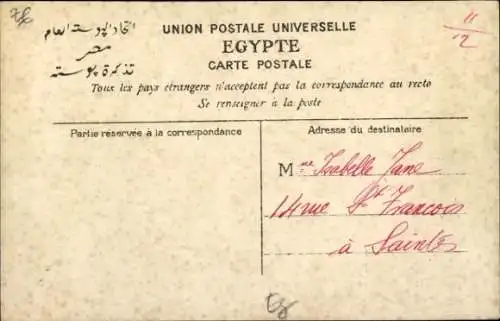 اتحاد البوستة العام
مصر
تذكرة بوسته
UNION POSTALE UNIVERSELLE
EGYPTE
CARTE POSTALE
Tous les pays étrangers n'acceptent pas la correspondance au recto
Se renseigner à la poste
11/12
Partie réservée à la correspondance
Adresse du destinataire
Mme Isabelle Jane
14 rue St Francois
à Saintes